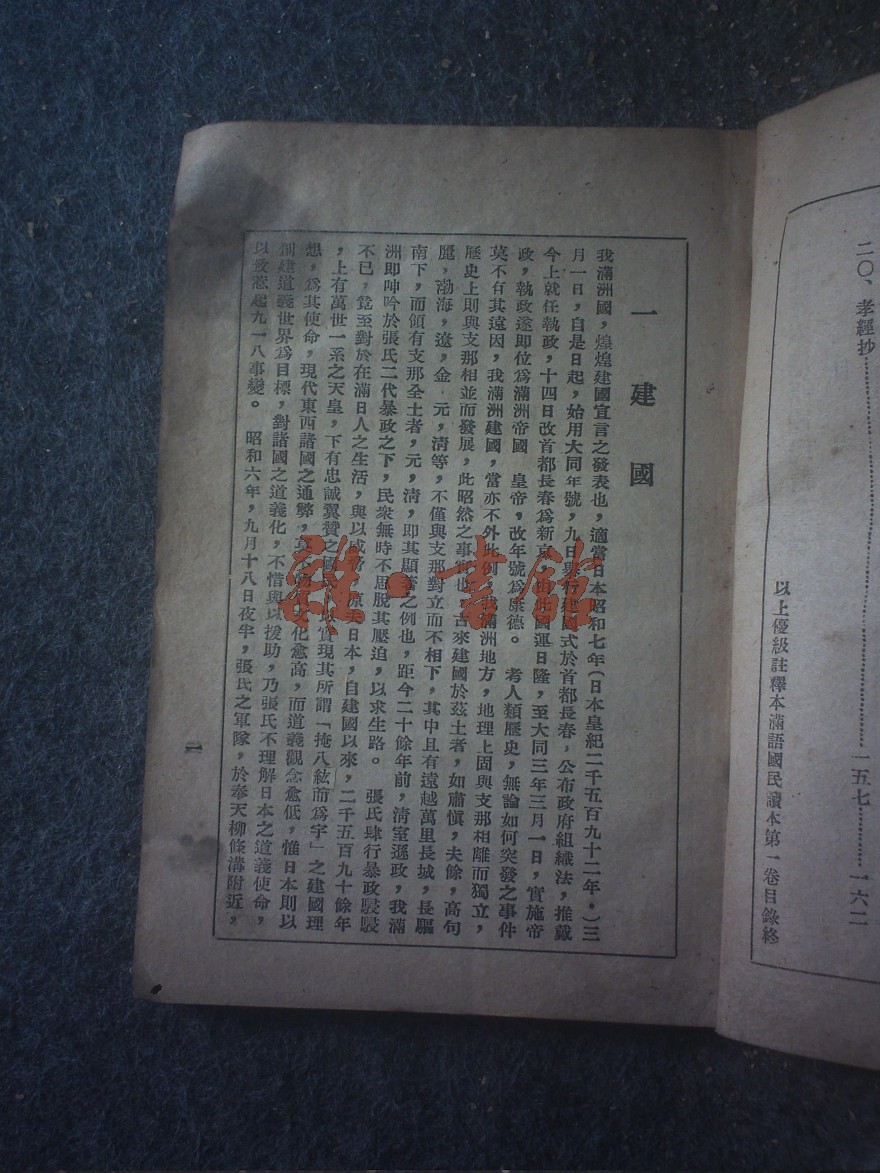 二〇、孝經抄……一五七……一六二
以上優級註釋本滿語國民讀本第一卷目錄終
一 建 國
我滿洲國,煌煌建國宣言之發表也,適當日本昭和七年(日本皇紀二千五百九十二年。)三
月一日,自是日起,始用大同年號,九日舉行建國式於首都長春,公布政府組織法,推戴
今上就任執政,十四日改首都長春爲新京,由此國運日隆,至大同三年三月一日,實施帝
政,執政遂即位爲滿洲帝國 皇帝,改年號爲康德。 考人類歷史,無論如何突發之事件
莫不有其遠因,我滿洲建國,當亦不外此例,我滿洲地方,地理上固與支那相離而獨立,
歷史上則與支那相並而發展,此昭然之事實也,古來建國於茲土者,如肅愼,夫餘,高句
麗,渤海,遼,金 元,清等,不僅與支那對立而不相下,其中且有遠越萬里長城,長驅
南下,而領有支那全土者,元,清,即其顯著之例也,距今二十餘年前,清室遜政,我滿
洲即呻吟於張氏二代暴政之下,民衆無時不思脫其壓迫,以求生路。 張氏肆行暴政駸駸
不已,竟至對於在滿日人之生活,與以威脅,原夫日本,自建國以來,二千五百九十餘年
,上有萬世一系之天皇,下有忠誠翼贊之國民,以實現其所謂「掩八紘而爲宇」之建國理
想,爲其使命,現代東西諸國之通弊,文化愈高,而道義觀念愈低,惟日本則以
創建道義世界爲目標,對諸國之道義化,不惜與以援助,乃張氏不理解日本之道義使命,
以致惹起九一八事變。 昭和六年,九月十八日夜半,張氏之軍隊,於奉天柳條溝附近,
一
雜·書館